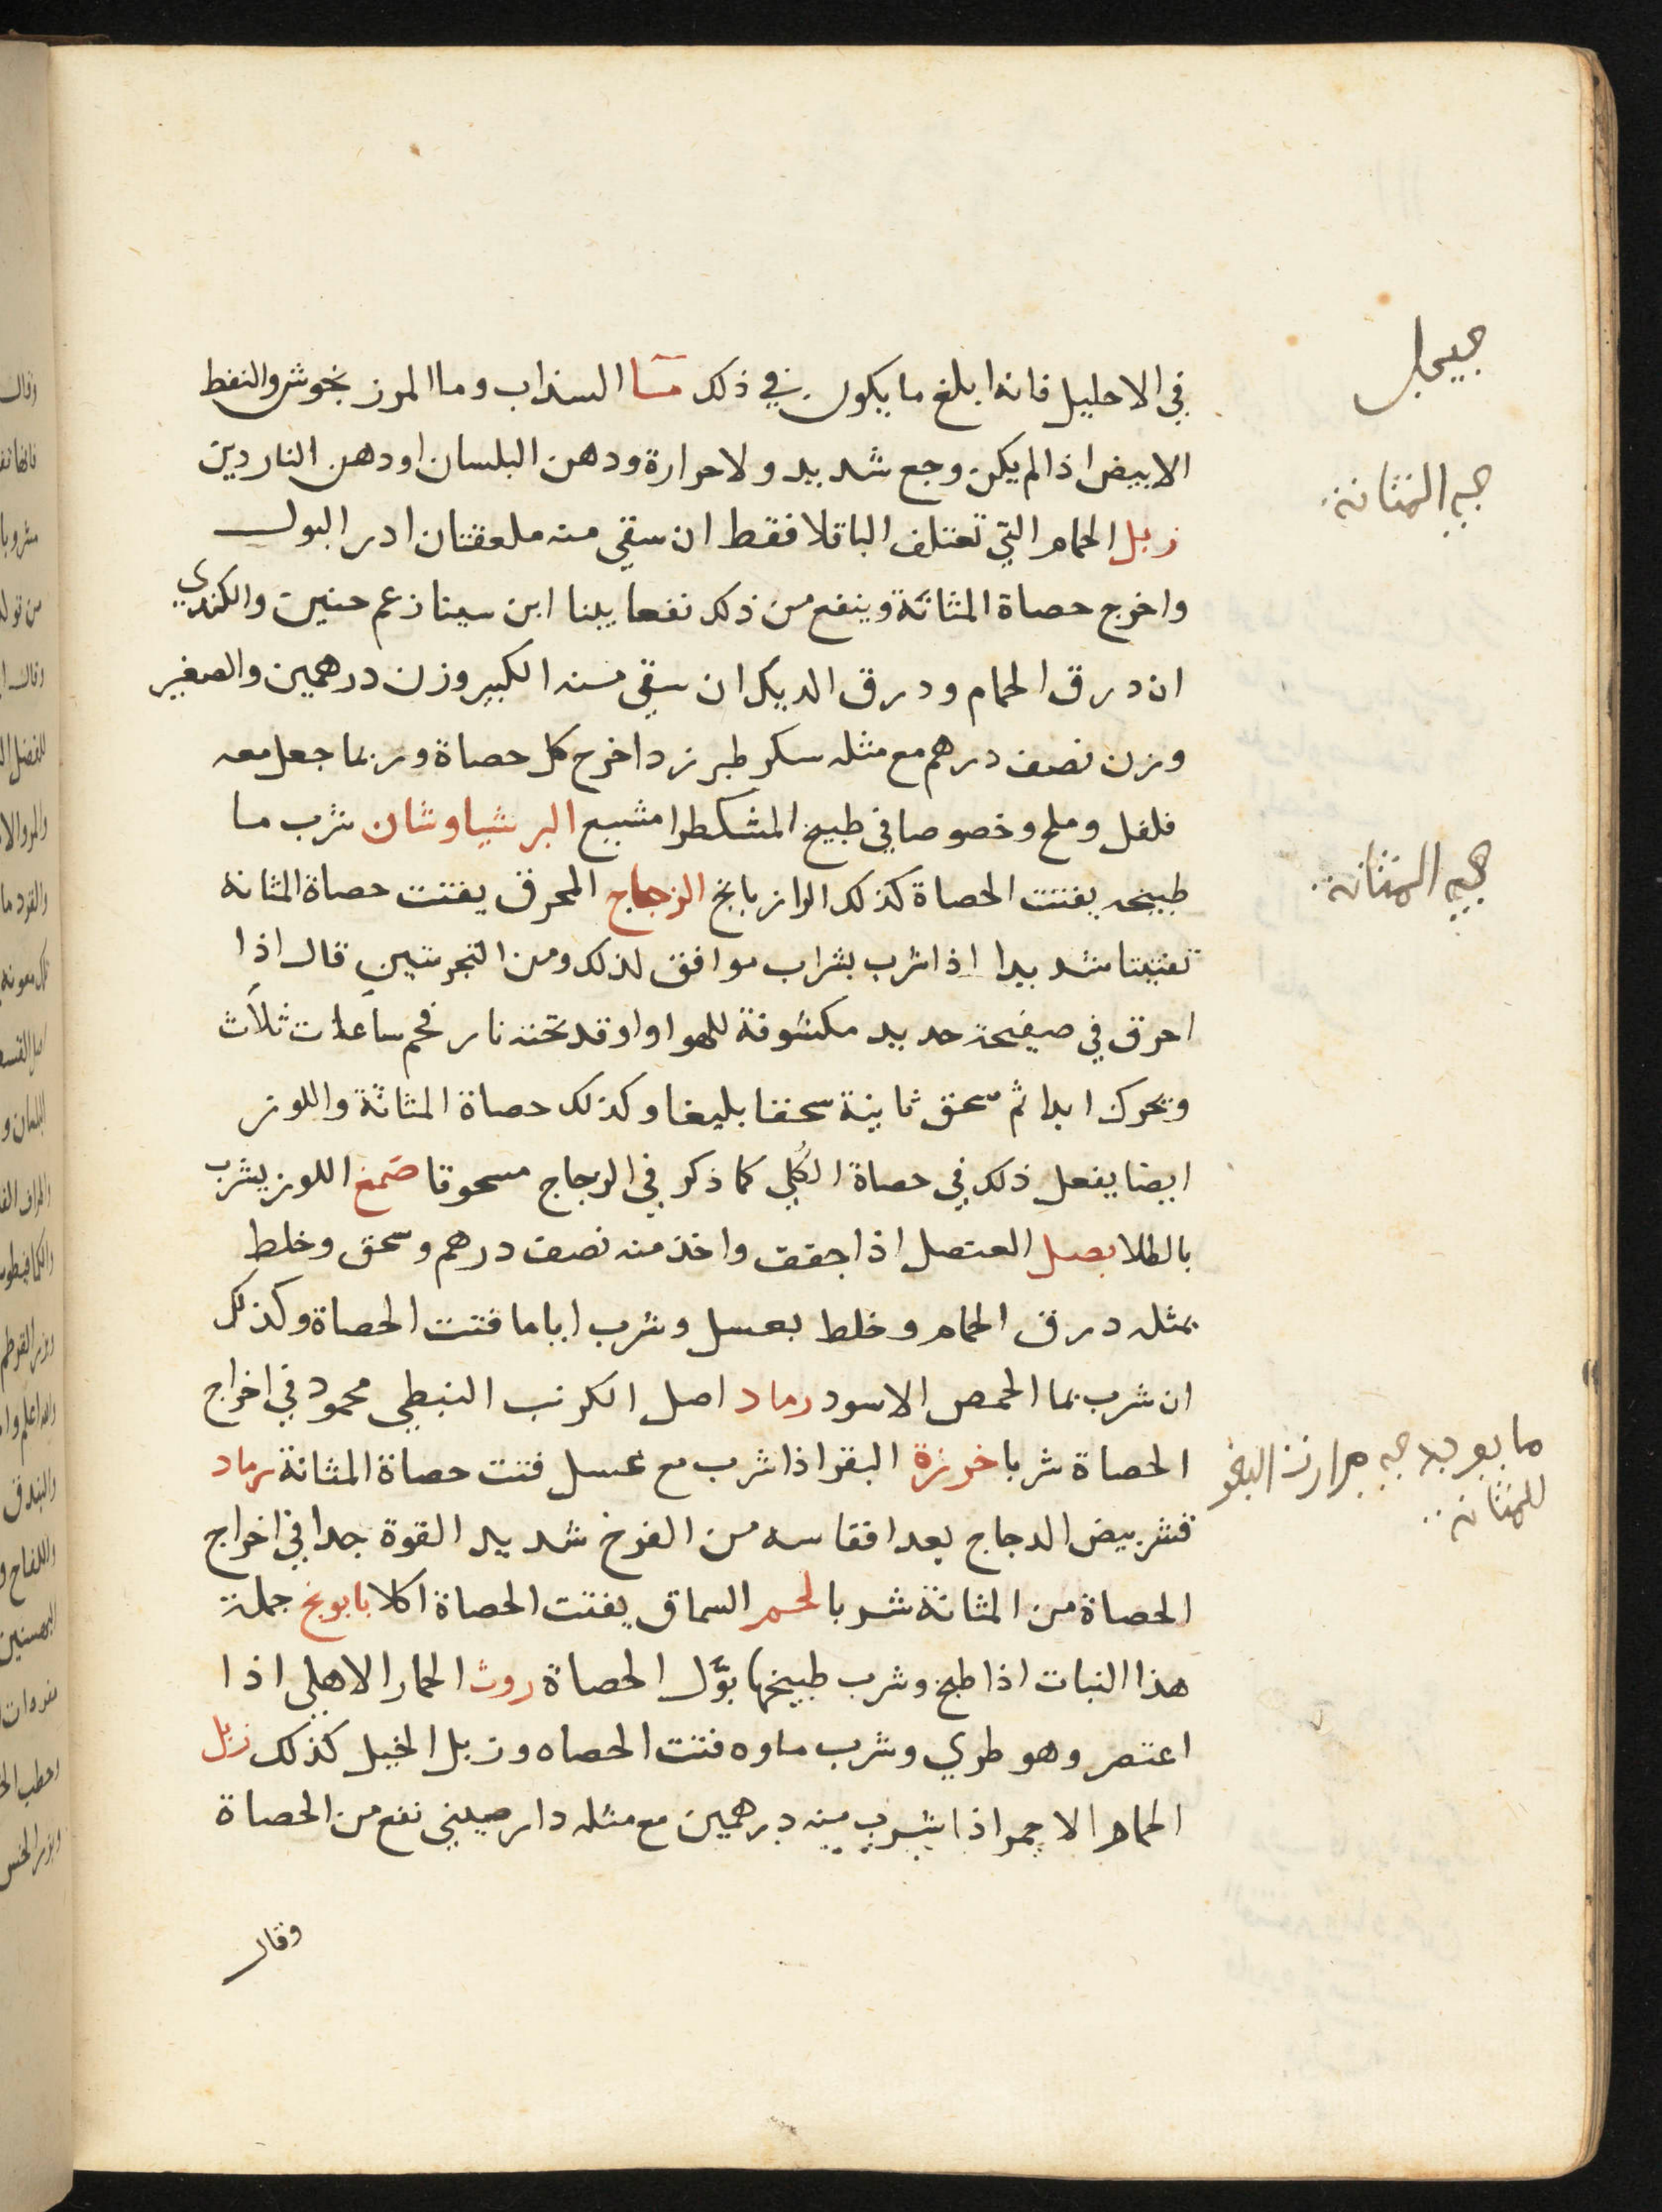 في الاحليل فانه ابلغ ما يكون في ذلك مآ السذاب وما المرزنجوش والنفط
الابيض اذا لم يكن وجع شديد ولا حرارة ودهن البلسان او دهن الناردين
زبل الحمام التي تعتلف الباقلا فقط ان سقي منه ملعقتان ادر البول
واخرج حصاة المثانة وينفع من ذلك نفعا بينا ابن سينا زعم حنين والكندي
ان درق الحمام ودرق الديك ان سقي منه الكبير وزن درهمين والصغير
وزن نصف درهم مع مثله سكر طبرزد اخرج كل حصاة وربما جعل معه
فلفل وملح وخصوصا في طبيخ المشكطرامشيع البرشياوشان شرب ما
طبيخه يفتت الحصاة كذلك الرازيانج الزجاج المحرق يفتت حصاة المثانه
تفتيتا شديدا اذا شرب بشراب موافق لذلك ومن التجربتين قال اذا
احرق في صفيحة حديد مكشوفة للهوا واوقد تحته نار فحم ساعات ثلاث
ويحرك ابدا ثم سحق ثانية سحقا بليغا وكذلك حصاة المثانة واللوز
ايضا يفعل ذلك في حصاة الكلي كما ذكر في الزجاج مسحوقا صمغ اللوز يشرب
بالطلا بصل العنصل اذا جفف واخذ منه نصف درهم وسحق وخلط
بمثله درق الحمام وخلط بعسل وشرب اياما فتت الحصاة وكذلك
ان شرب بما الحمص الاسود رماد اصل الكرنب النبطي محمود في اخراج
الحصاة شربا خرزة البقر اذا شرب مع عسل فتت حصاة المثانة رماد
قشر بيض الدجاج بعد افقاسه من الفرخ شديد القوة جدا في اخراج
الحصاة من المثانة شربا لحم السماق يفتت الحصاة اكلا بابونج جملة
هذا النبات اذا طبخ وشرب طبيخها بوّل الحصاة روث الحمار الاهلي اذا
اعتصر وهو طري وشرب ماوه فتت الحصاه وزبل الخيل كذلك زبل
الحمام الاحمر اذا شرب منه درهمين مع مثله دارصيني نفع من الحصاة
وقال
للمثانة